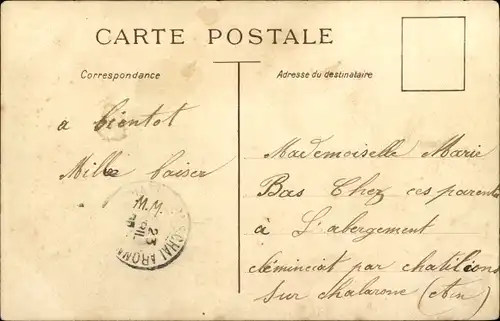 CARTE POSTALE
Correspondance
Adresse du destinataire
a bientot
Mille baiser
Mademoiselle Marie
Bas Chez ces parents
à L'abergement
cléminciat par chatillons
sur chalarone (Ain)
23